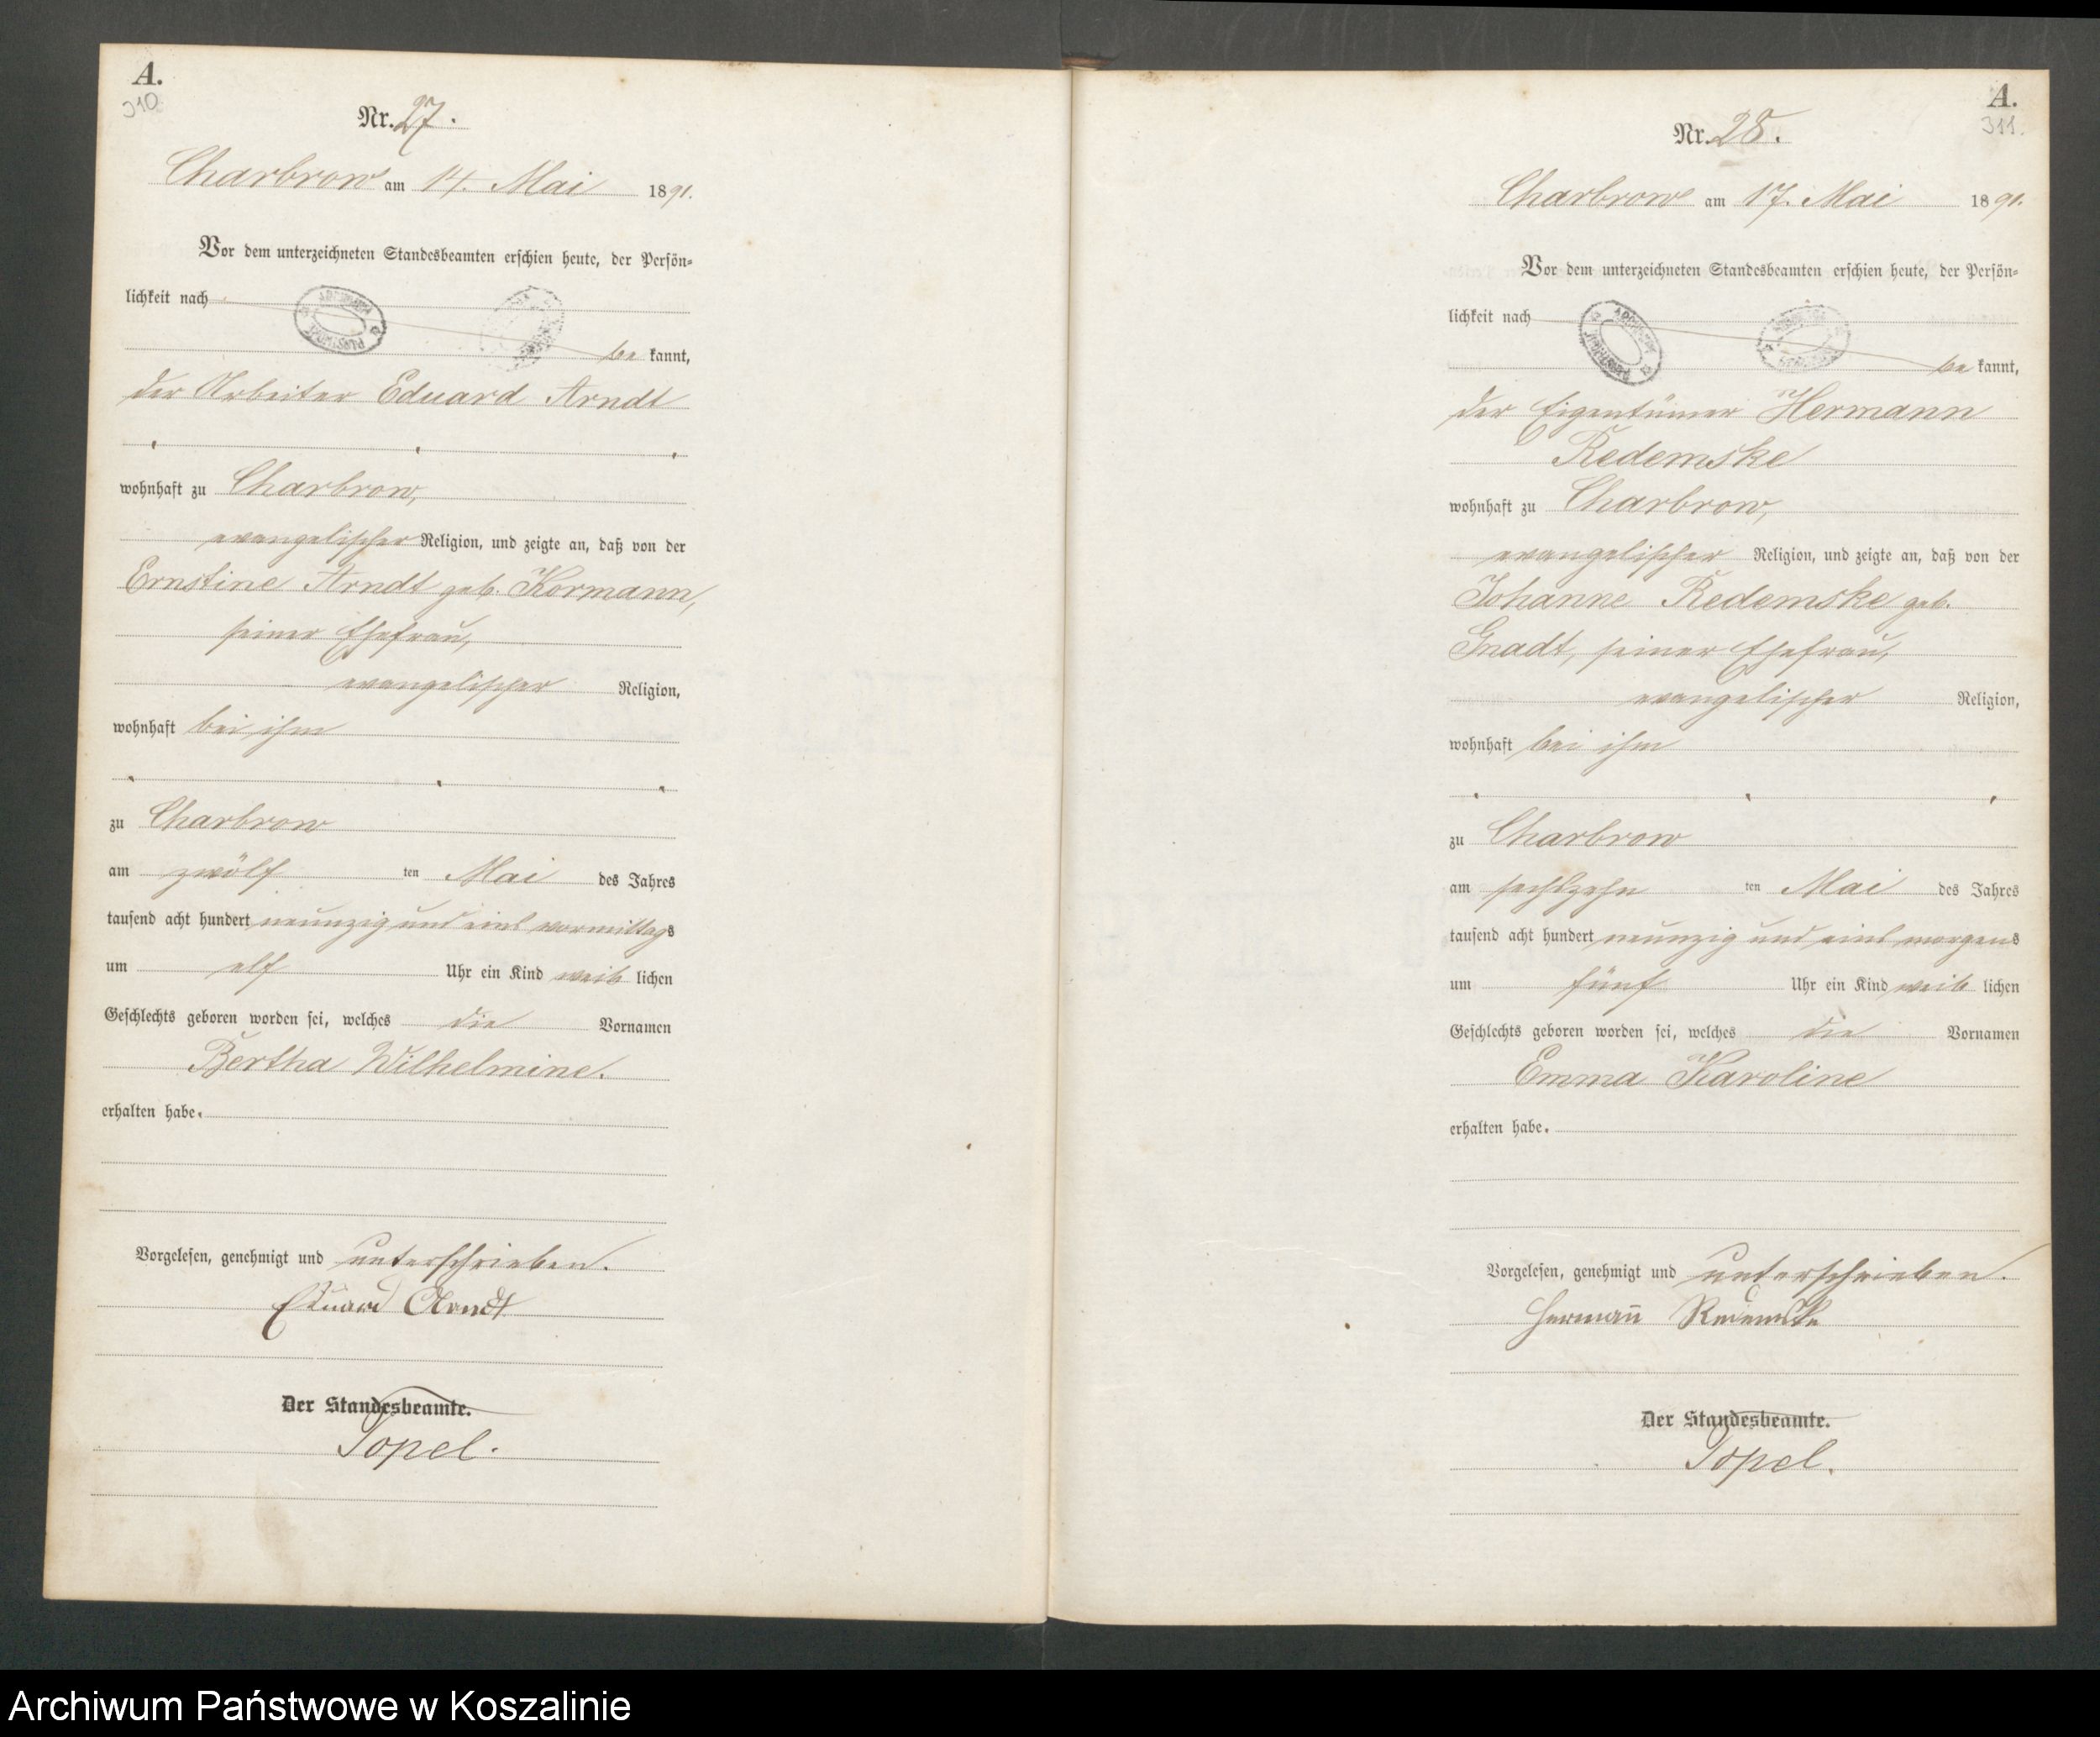 A.
310
Nr. 27.
Charbrow am 14. Mai 1891.
Vor dem unterzeichneten Standesbeamten erschien heute, der Persön-
lichkeit nach
be kannt,
der Arbeiter Eduard Arndt
wohnhaft zu Charbrow,
evangelischer Religion, und zeigte an, daß von der
Ernstine Arndt geb. Kormann,
seiner Ehefrau,
evangelischer Religion,
wohnhaft bei ihm
zu Charbrow
am zwölf ten Mai des Jahres
tausend acht hundert neunzig und eins vormittags
um elf Uhr ein Kind weib lichen
Geschlechts geboren worden sei, welches die Vornamen
Bertha Wilhelmine.
erhalten habe.
Vorgelesen, genehmigt und unterschrieben.
Eduard Arndt
Der Standesbeamte.
Topel.
A.
311.
Nr. 28.
Charbrow am 17. Mai 1891.
Vor dem unterzeichneten Standesbeamten erschien heute, der Persön-
lichkeit nach
be kannt,
der Eigentümer Hermann
Redemske
wohnhaft zu Charbrow,
evangelischer Religion, und zeigte an, daß von der
Johanne Redemske geb.
Gnadt, seiner Ehefrau,
evangelischer Religion,
wohnhaft bei ihm
zu Charbrow
am sechszehn ten Mai des Jahres
tausend acht hundert neunzig und eins morgens
um fünf Uhr ein Kind weib lichen
Geschlechts geboren worden sei, welches die Vornamen
Emma Karoline
erhalten habe.
Vorgelesen, genehmigt und unterschrieben.
Hermann̄ Redemske
Der Standesbeamte.
Topel.
Archiwum Państwowe w Koszalinie